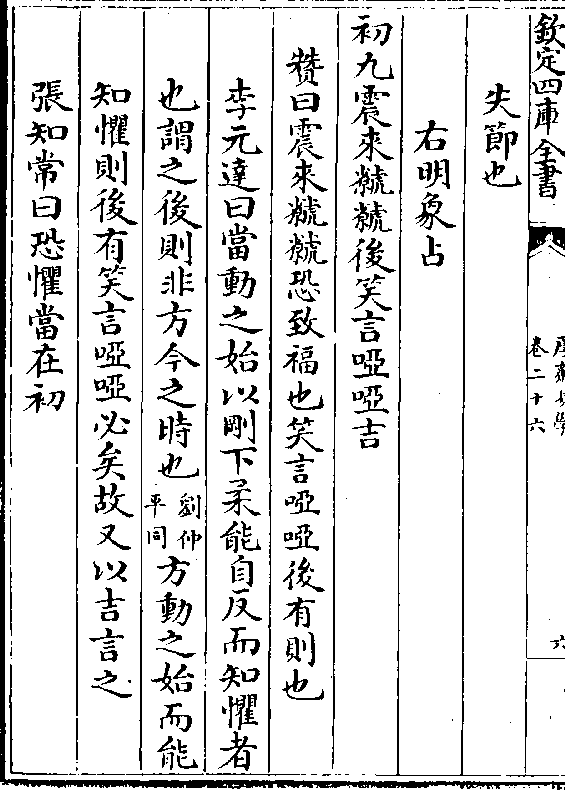 欽定四庫全書
卷二十六
六
失節也
右明象占
初九震來虩虩後笑言啞啞吉
贊曰震來虩虩恐致福也笑言啞啞後有則也
李元達曰當動之始以剛下柔能自反而知懼者
也謂之後則非方今之時也劉仲平同方動之始而能
知懼則後有笑言啞啞必矣故又以吉言之
張知常曰恐懼當在初